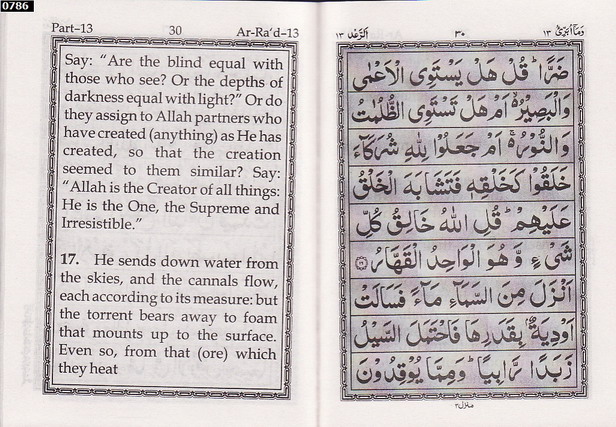 0786
Part–13 30 Ar-Ra'd–13
Say: "Are the blind equal with
those who see? Or the depths of
darkness equal with light?" Or do
they assign to Allah partners who
have created (anything) as He has
created, so that the creation
seemed to them similar? Say:
"Allah is the Creator of all things:
He is the One, the Supreme and
Irresistible."
17. He sends down water from
the skies, and the cannals flow,
each according to its measure: but
the torrent bears away to foam
that mounts up to the surface.
Even so, from that (ore) which
they heat
وَمَآ اُبَرِّئُ ١٣ ٣٠ اَلرَّعْد ١٣
ضَرًّا ؕ قُلْ هَلْ يَسْتَوِى الْاَعْمٰى
وَالْبَصِيْرُ ۙ اَمْ هَلْ تَسْتَوِى الظُّلُمٰتُ
وَالنُّوْرُ ۚ اَمْ جَعَلُوْا لِلّٰهِ شُرَكَآءَ
خَلَقُوْا كَخَلْقِهٖ فَتَشَابَهَ الْخَلْقُ
عَلَيْهِمْ ؕ قُلِ اللّٰهُ خَالِقُ كُلِّ
شَىْءٍ وَّهُوَ الْوَاحِدُ الْقَهَّارُ ۝١٦
اَنْزَلَ مِنَ السَّمَآءِ مَآءً فَسَالَتْ
اَوْدِيَةٌۢ بِقَدَرِهَا فَاحْتَمَلَ السَّيْلُ
زَبَدًا رَّابِيًا ؕ وَمِمَّا يُوْقِدُوْنَ
منزل ٣